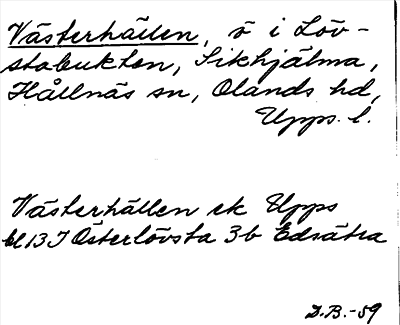 Västerhällen, ö i Löv-
stabukten, Sikhjälma,
Hållnäs sn, Olands hd,
Upps. l.
Västerhällen ek Upps
bl 13 J Österlövsta 3b Edsätra
D.B.-59